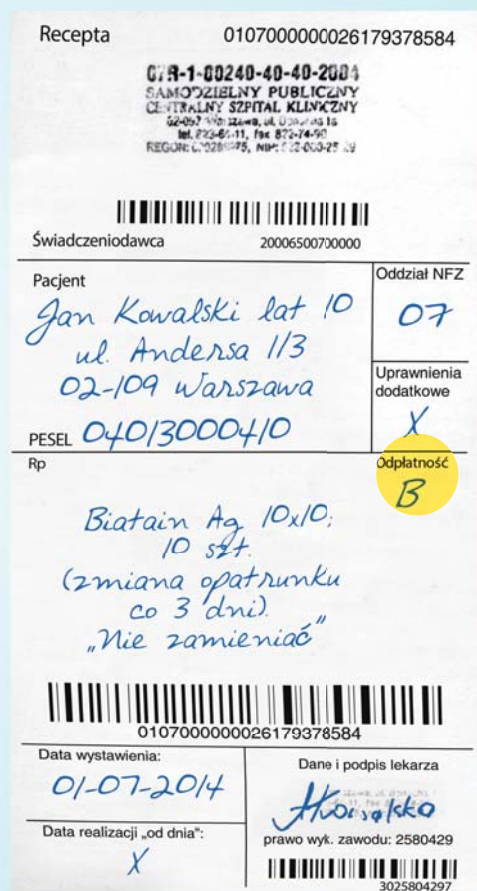 Recepta 0107000000026179378584
07R-1-00240-40-40-2004
SAMODZIELNY PUBLICZNY
CENTRALNY SZPITAL KLINICZNY
Świadczeniodawca 20006500700000
Pacjent
Jan Kowalski lat 10
ul. Andersa 1/3
02-109 Warszawa
PESEL 04013000410
Oddział NFZ
07
Uprawnienia
dodatkowe
X
Rp
Odpłatność
B
Biatain Ag 10x10;
10 szt.
(zmiana opatrunku
co 3 dni).
„Nie zamieniać"
0107000000026179378584
Data wystawienia:
01-07-2014
Data realizacji „od dnia":
X
Dane i podpis lekarza
prawo wyk. zawodu: 2580429
3025804297